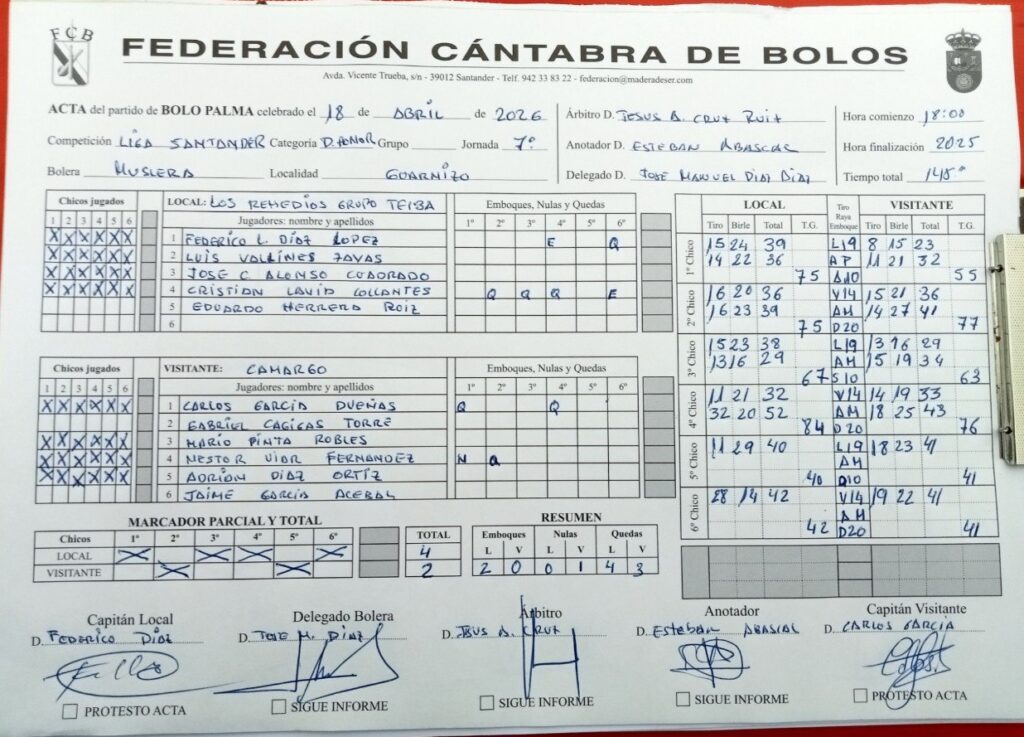 FCB
FEDERACIÓN CÁNTABRA DE BOLOS
Avda. Vicente Trueba, s/n - 39012 Santander - Telf. 942 33 83 22 - federacion@maderadeser.com
ACTA del partido de BOLO PALMA celebrado el 18 de ABRIL de 2026
Competición LIGA SANTANDER Categoría D. HONOR Grupo Jornada 7ª
Bolera MUSLERA Localidad GUARNIZO
Árbitro D. JESUS A. CRUZ RUIZ
Anotador D. ESTEBAN ABASCAL
Delegado D. JOSE MANUEL DIAZ DIAZ
Hora comienzo 18:00
Hora finalización 2025
Tiempo total 145"
Chicos jugados LOCAL: LOS REMEDIOS GRUPO TEIBA Emboques, Nulas y Quedas
1 2 3 4 5 6 Jugadores: nombre y apellidos 1º 2º 3º 4º 5º 6º
X X X X X X 1 FEDERICO L. DÍAZ LOPEZ E Q
X X X X X X 2 LUIS VALLINES ZAYAS
X X X X X X 3 JOSE C ALONSO CUADRADO
X X X X X X 4 CRISTIAN LAVID COLLANTES Q Q Q E
5 EDUARDO HERRERA RUIZ
6
Chicos jugados VISITANTE: CAMARGO Emboques, Nulas y Quedas
1 2 3 4 5 6 Jugadores: nombre y apellidos 1º 2º 3º 4º 5º 6º
X X X X X X 1 CARLOS GARCÍA DUEÑAS Q Q
2 GABRIEL CAGIGAS TORRE
X X X X X X 3 MARIO PINTA ROBLES
X X X X X X 4 NESTOR VIAR FERNANDEZ N Q
X X X X X X 5 ADRIÓN DIAZ ORTÍZ
6 JAIME GARCÍA ACEBAL
LOCAL Tiro Raya Emboque VISITANTE
Tiro Birle Total T.G. Tiro Birle Total T.G.
1º Chico
15 24 39 L19 8 15 23
14 22 36 AP 11 21 32
75 A10 55
2º Chico
16 20 36 V14 15 21 36
16 23 39 AM 14 27 41
75 D20 77
3º Chico
15 23 38 L19 13 16 29
13 16 29 AM 15 19 34
67 S10 63
4º Chico
11 21 32 V14 14 19 33
32 20 52 AM 18 25 43
84 D20 76
5º Chico
11 29 40 L19 18 23 41
AM
40 D10 41
6º Chico
28 14 42 V14 19 22 41
AM
42 D20 41
MARCADOR PARCIAL Y TOTAL
Chicos 1º 2º 3º 4º 5º 6º TOTAL
LOCAL X X X X 4
VISITANTE X X 2
RESUMEN
Emboques Nulas Quedas
L V L V L V
2 0 0 1 4 3
Capitán Local Delegado Bolera Árbitro Anotador Capitán Visitante
D. FEDERICO DÍAZ D. JOSE M. DÍAZ D. JSUS A. CRUZ D. ESTEBAN ABASCAL D. CARLOS GARCÍA
PROTESTO ACTA SIGUE INFORME SIGUE INFORME SIGUE INFORME PROTESTO ACTA